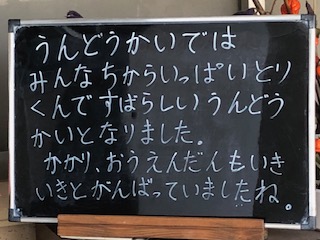 うんどうかいでは
みんなちからいっぱいとり
くんですばらしいうんどう
かいとなりました。
かかり、おうえんだんもいき
いきとがんばっていましたね。